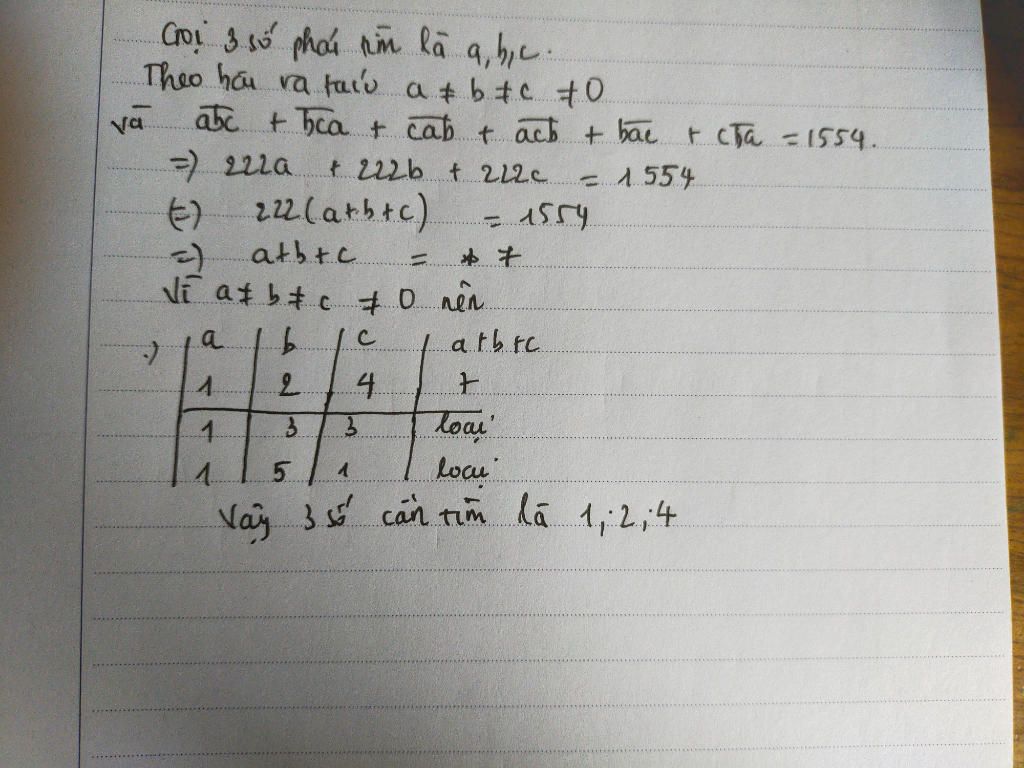 Gọi 3 số phải tìm là a, b, c.
Theo bài ra ta có a ≠ b ≠ c ≠ 0
và abc + bca + cab + acb + bac + cba = 1554.
=> 222a + 222b + 222c = 1554
(=) 222(a+b+c) = 1554
=) a+b+c = 7
Vì a ≠ b ≠ c ≠ 0 nên
.) a | b | c | a+b+c
1 | 2 | 4 | 7
1 | 3 | 3 | loại
1 | 5 | 1 | loại
Vậy 3 số cần tìm là 1; 2; 4